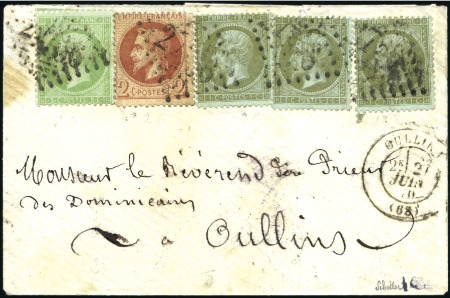 EMPIRE FRANÇAIS
2 C. POSTES 2
OULLINS
2E
2
JUIN
70
(68)
Monsieur le Révérend Père Prieur
des Dominicains
à Oullins